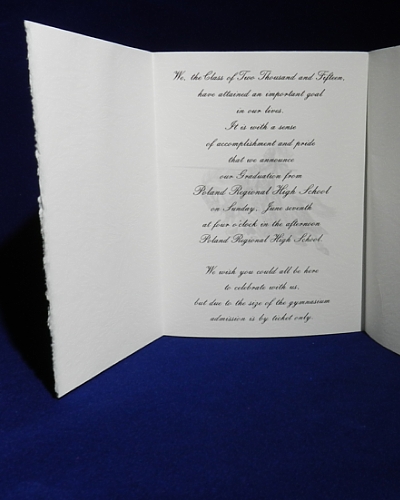 We, the Class of Two Thousand and Fifteen,
have attained an important goal
in our lives.
It is with a sense
of accomplishment and pride
that we announce
our Graduation from
Poland Regional High School
on Sunday, June seventh
at four o'clock in the afternoon
Poland Regional High School
We wish you could all be here
to celebrate with us,
but due to the size of the gymnasium
admission is by ticket only.